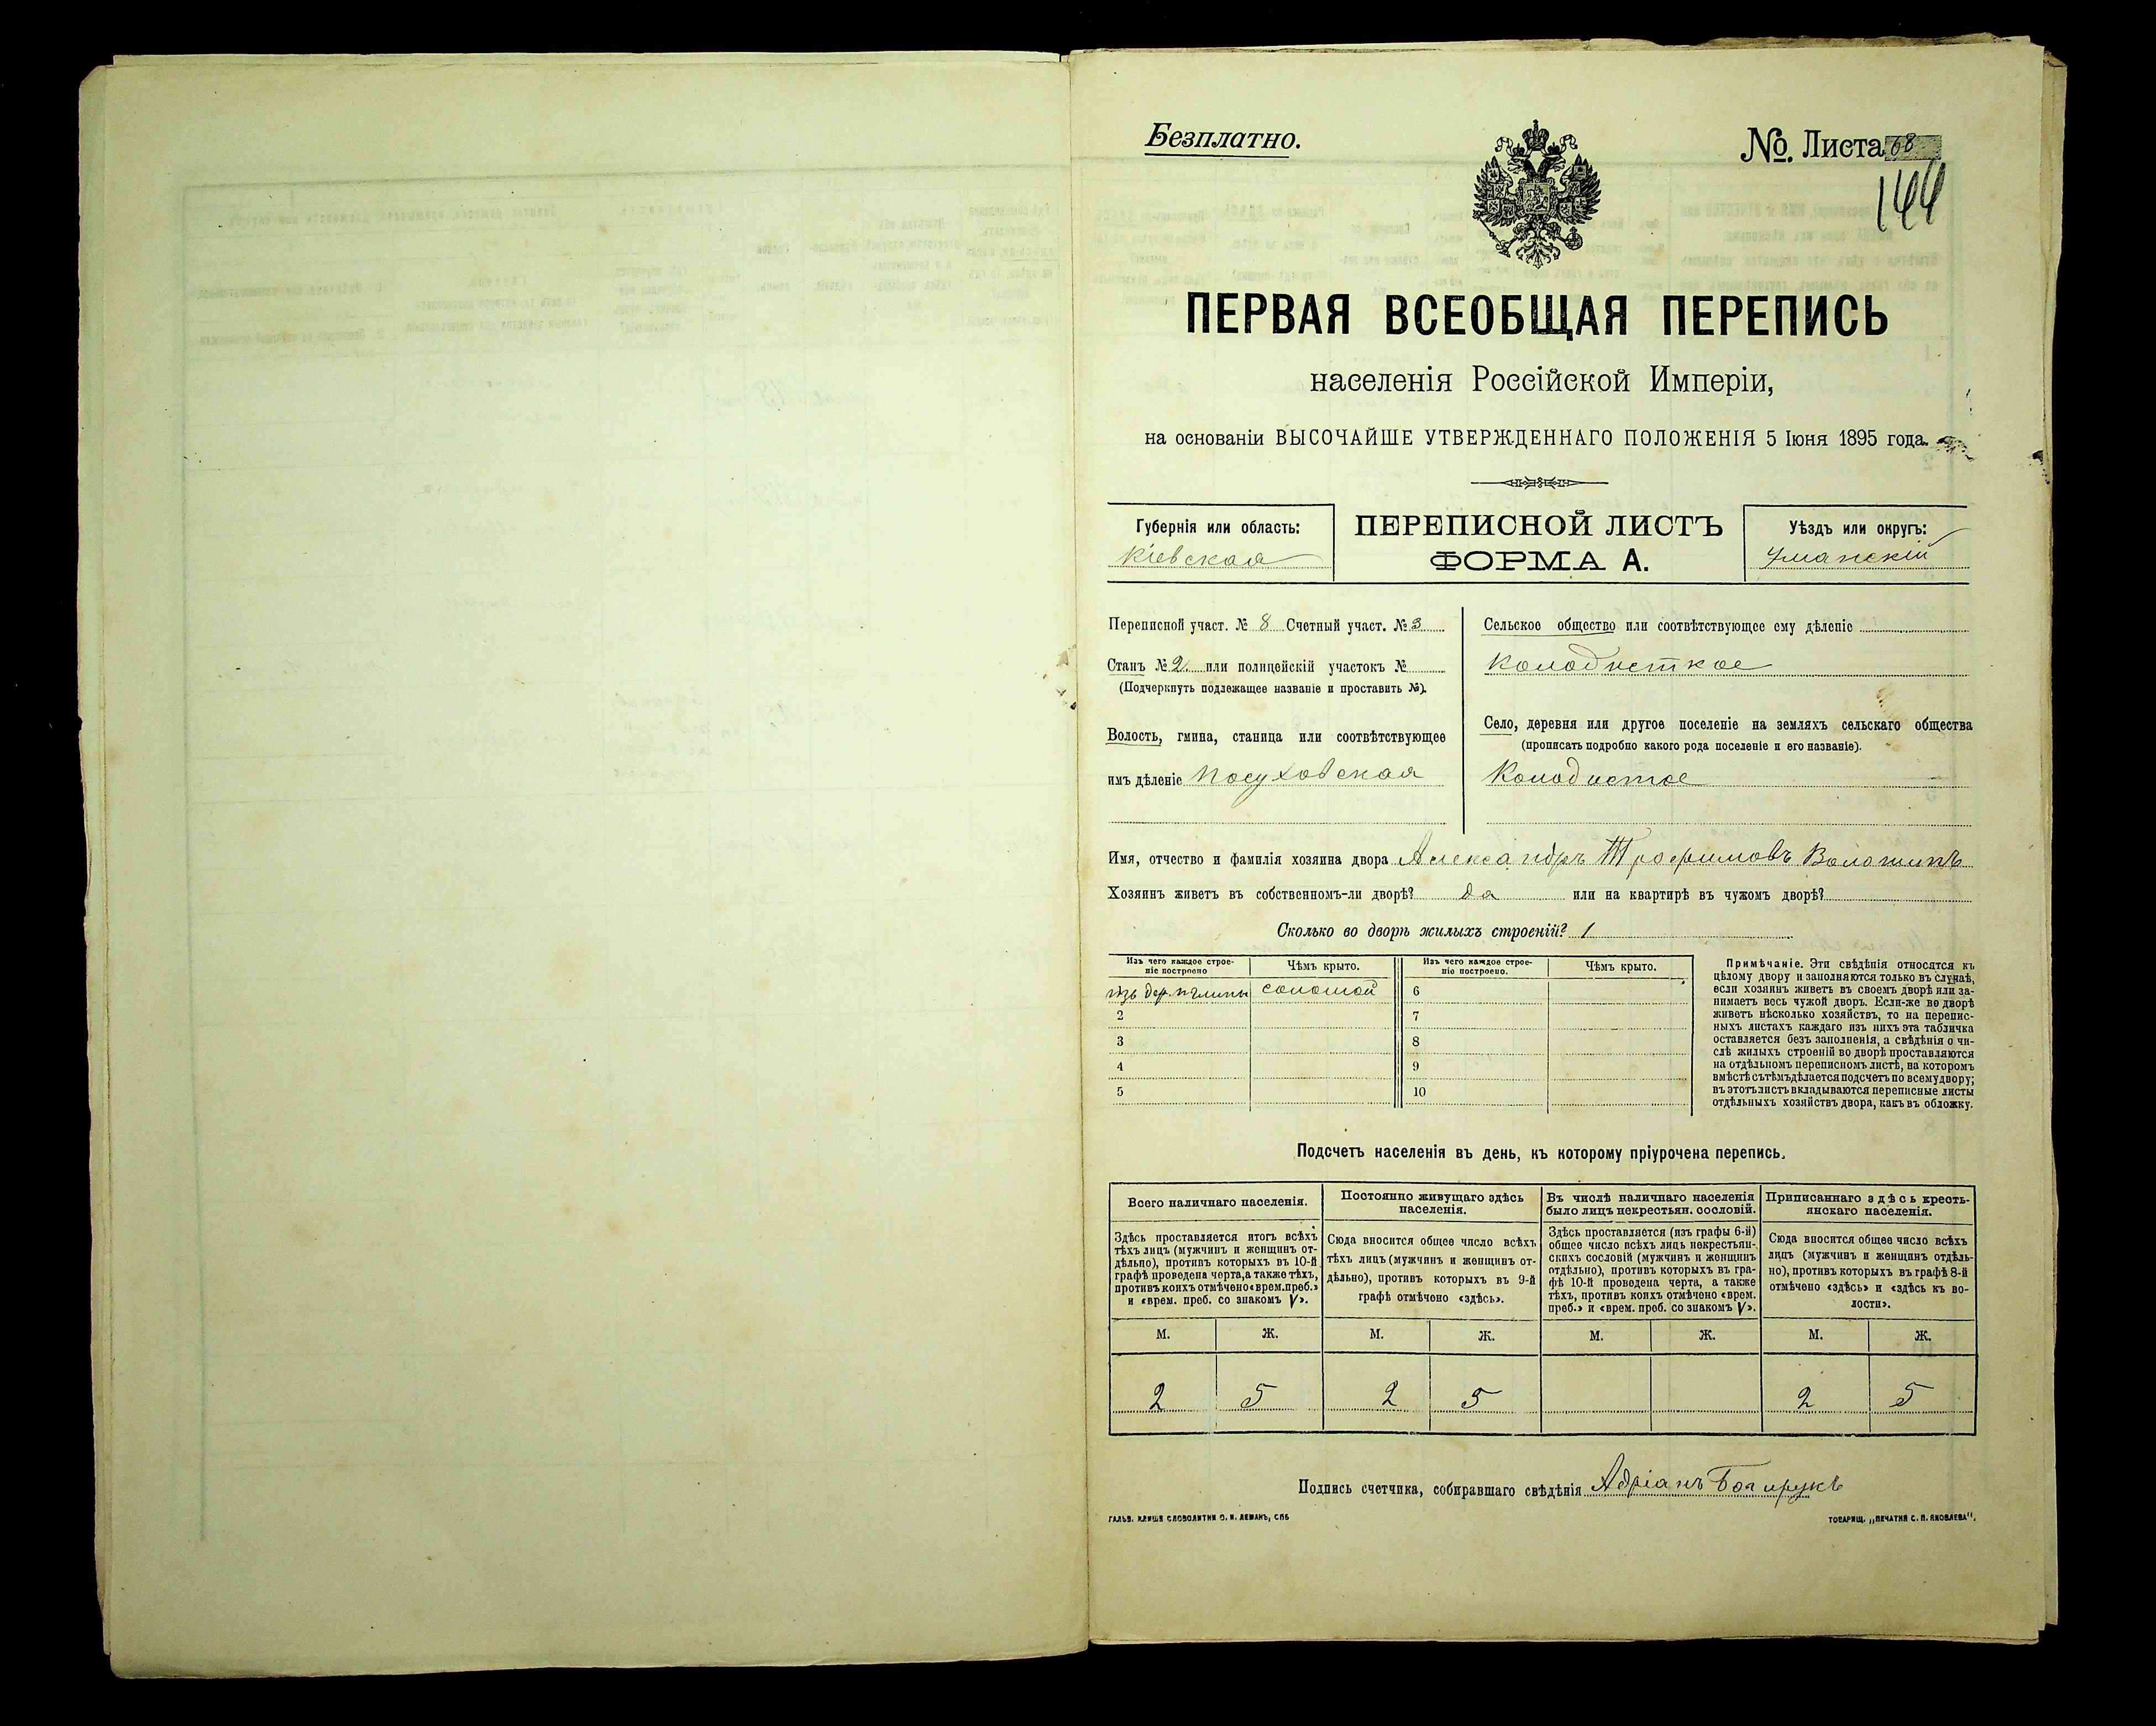 Безплатно.
№. Листа 68
144
ПЕРВАЯ ВСЕОБЩАЯ ПЕРЕПИСЬ
населенія Россійской Имперіи,
на основаніи ВЫСОЧАЙШЕ УТВЕРЖДЕННАГО ПОЛОЖЕНІЯ 5 Іюня 1895 года.
Губернія или область:
Кіевская
ПЕРЕПИСНОЙ ЛИСТЪ
ФОРМА А.
Уѣздъ или округъ:
Уманскій
Переписной участ. № 8 Счетный участ. № 3
Станъ № 2 или полицейскій участокъ №
(Подчеркнуть подлежащее названіе и проставить №).
Волость, гмина, станица или соотвѣтствующее
имъ дѣленіе Посуховская
Сельское общество или соотвѣтствующее ему дѣленіе
Колодисткое
Село, деревня или другое поселеніе на земляхъ сельскаго общества
(прописать подробно какого рода поселеніе и его названіе).
Колодистое
Имя, отчество и фамилія хозяина двора Александръ Трофимовъ Волошинъ
Хозяинъ живетъ въ собственномъ-ли дворѣ? да или на квартирѣ въ чужомъ дворѣ?
Сколько во дворѣ жилыхъ строеній? 1
Изъ чего каждое строе-
ніе построено
Чѣмъ крыто.
Изъ чего каждое строе-
ніе построено.
Чѣмъ крыто.
изъ дер. и глины соломой 6
2 7
3 8
4 9
5 10
Примѣчаніе. Эти свѣдѣнія относятся къ
цѣлому двору и заполняются только въ случаѣ,
если хозяинъ живетъ въ своемъ дворѣ или за-
нимаетъ весь чужой дворъ. Если-же во дворѣ
живетъ нѣсколько хозяйствъ, то на перепис-
ныхъ листахъ каждаго изъ нихъ эта табличка
оставляется безъ заполненія, а свѣдѣнія о чи-
слѣ жилыхъ строеній во дворѣ проставляются
на отдѣльномъ переписномъ листѣ, на которомъ
вмѣстѣ съ тѣмъ дѣлается подсчетъ по всему двору;
въ этотъ листъ вкладываются переписные листы
отдѣльныхъ хозяйствъ двора, какъ въ обложку.
Подсчетъ населенія въ день, къ которому пріурочена перепись.
Всего наличнаго населенія.
Здѣсь проставляется итогъ всѣхъ
тѣхъ лицъ (мужчинъ и женщинъ от-
дѣльно), противъ которыхъ въ 10-й
графѣ проведена черта, а также тѣхъ,
противъ коихъ отмѣчено «врем. преб.»
и «врем. преб. со знакомъ V».
Постоянно живущаго здѣсь
населенія.
Сюда вносится общее число всѣхъ
тѣхъ лицъ (мужчинъ и женщинъ от-
дѣльно), противъ которыхъ въ 9-й
графѣ отмѣчено «здѣсь».
Въ числѣ наличнаго населенія
было лицъ некрестьян. сословій.
Здѣсь проставляется (изъ графы 6-й)
общее число всѣхъ лицъ некрестьян-
скихъ сословій (мужчинъ и женщинъ
отдѣльно), противъ которыхъ въ гра-
фѣ 10-й проведена черта, а также
тѣхъ, противъ коихъ отмѣчено «врем.
преб.» и «врем. преб. со знакомъ V».
Приписаннаго здѣсь кресть-
янскаго населенія.
Сюда вносится общее число всѣхъ
лицъ (мужчинъ и женщинъ отдѣль-
но), противъ которыхъ въ графѣ 8-й
отмѣчено «здѣсь» и «здѣсь къ во-
лости».
М. Ж. М. Ж. М. Ж. М. Ж.
2 5 2 5 2 5
Подпись счетчика, собиравшаго свѣдѣнія Адріанъ
ГАЛЬВ. КЛИШЕ СЛОВОЛИТНИ О. И. ЛЕМАНЪ, СПБ
ТОВАРИЩ. „ПЕЧАТНЯ С. П. ЯКОВЛЕВА".